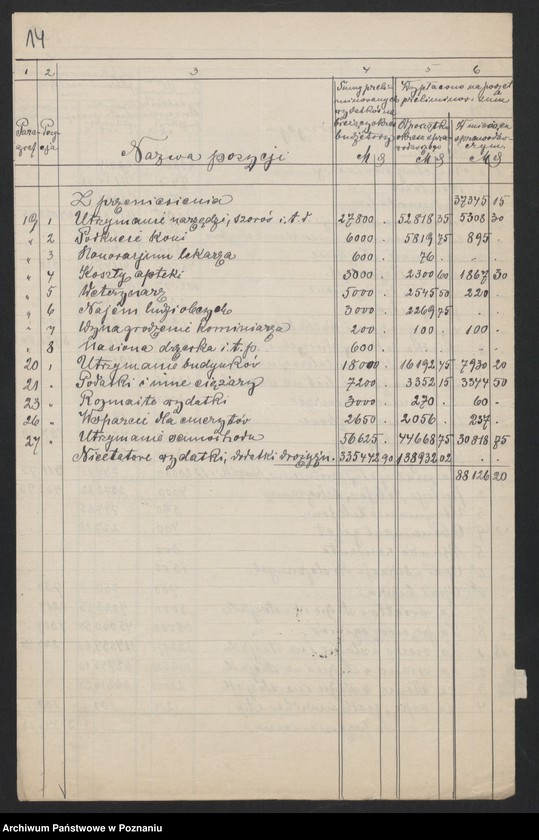 14
1 2 3 4 5 6
Sumy preliminowanych wydatków na bieżący okres budżetowy
Wypłacono na poczet preliminowanych sum
Paragraf
Pozycja
Nazwa pozycji
Od początku okresu sprawozdawczego
W miesiącu sprawozdawczym
M S M S M S
Z przeniesienia 37345 15
19 1 Utrzymanie narzędzi, szorów i.t.d 27800 . 52818 35 5308 30
" 2 Podkucie koni 6000 . 5819 75 895 .
" 3 Honorarjum lekarza 600 . 76 . . .
" 4 Koszty apteki 3000 . 2300 60 1867 30
" 5 Weterynarz 5000 . 2545 50 220 .
" 6 Najem ludzi obcych 3000 . 2269 75 . .
" 7 Wynagrodzenie kominiarza 200 . 100 . 100 .
" 8 Nasiona drzewka i.t.p. 600 . . . . .
20 " Utrzymanie budynków 18000 . 16192 45 7930 20
21 " Podatki i inne ciężary 7200 . 3352 15 3374 50
23 " Rozmaite wydatki 3000 . 270 . 60 .
26 " Wsparcie dla emerytów 2650 . 2056 . 237 .
27 " Utrzymanie samochodu 56625 . 44668 75 30818 75
Nieetatowe wydatki, dodatki drożyźn. 335442 90 138932 02 . .
88126 20
Archiwum Państwowe w Poznaniu